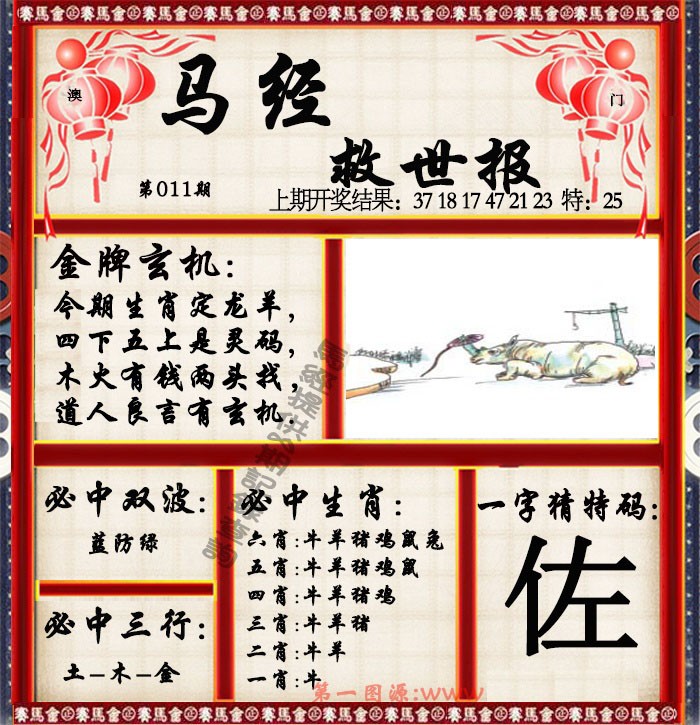 賽馬會金賽馬會金賽馬會金賽馬會金賽馬會金
澳
门
马经
救世报
第011期
上期开奖结果：37 18 17 47 21 23 特：25
金牌玄机：
今期生肖定龙羊，
四下五上是灵码，
木火有钱两头找，
道人良言有玄机.
必中双波：
蓝防绿
必中三行：
土-木-金
必中生肖：
六肖:牛羊猪鸡鼠兔
五肖:牛羊猪鸡鼠
四肖:牛羊猪鸡
三肖:牛羊猪
二肖:牛羊
一肖:牛
一字猜特码：
佐
第一图源:www